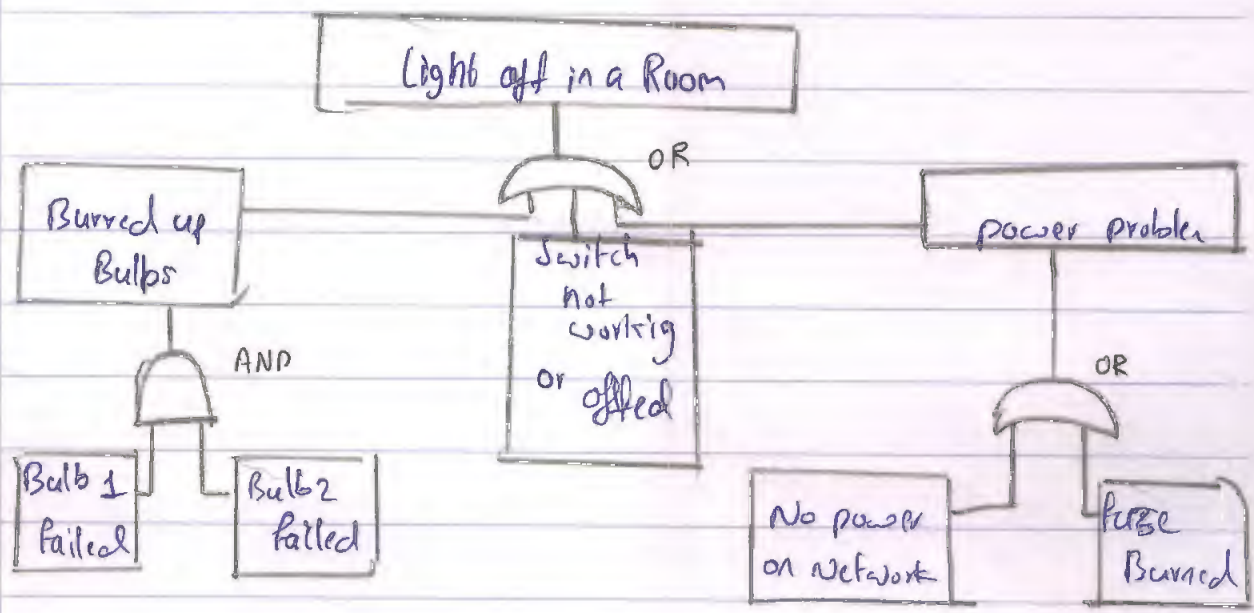 Light off in a Room
OR
Burred up
Bulbs
Switch
not
workig
or offed
power problem
AND
OR
Bulb 1
failed
Bulb 2
failed
No power
on Network
fuse
Burned